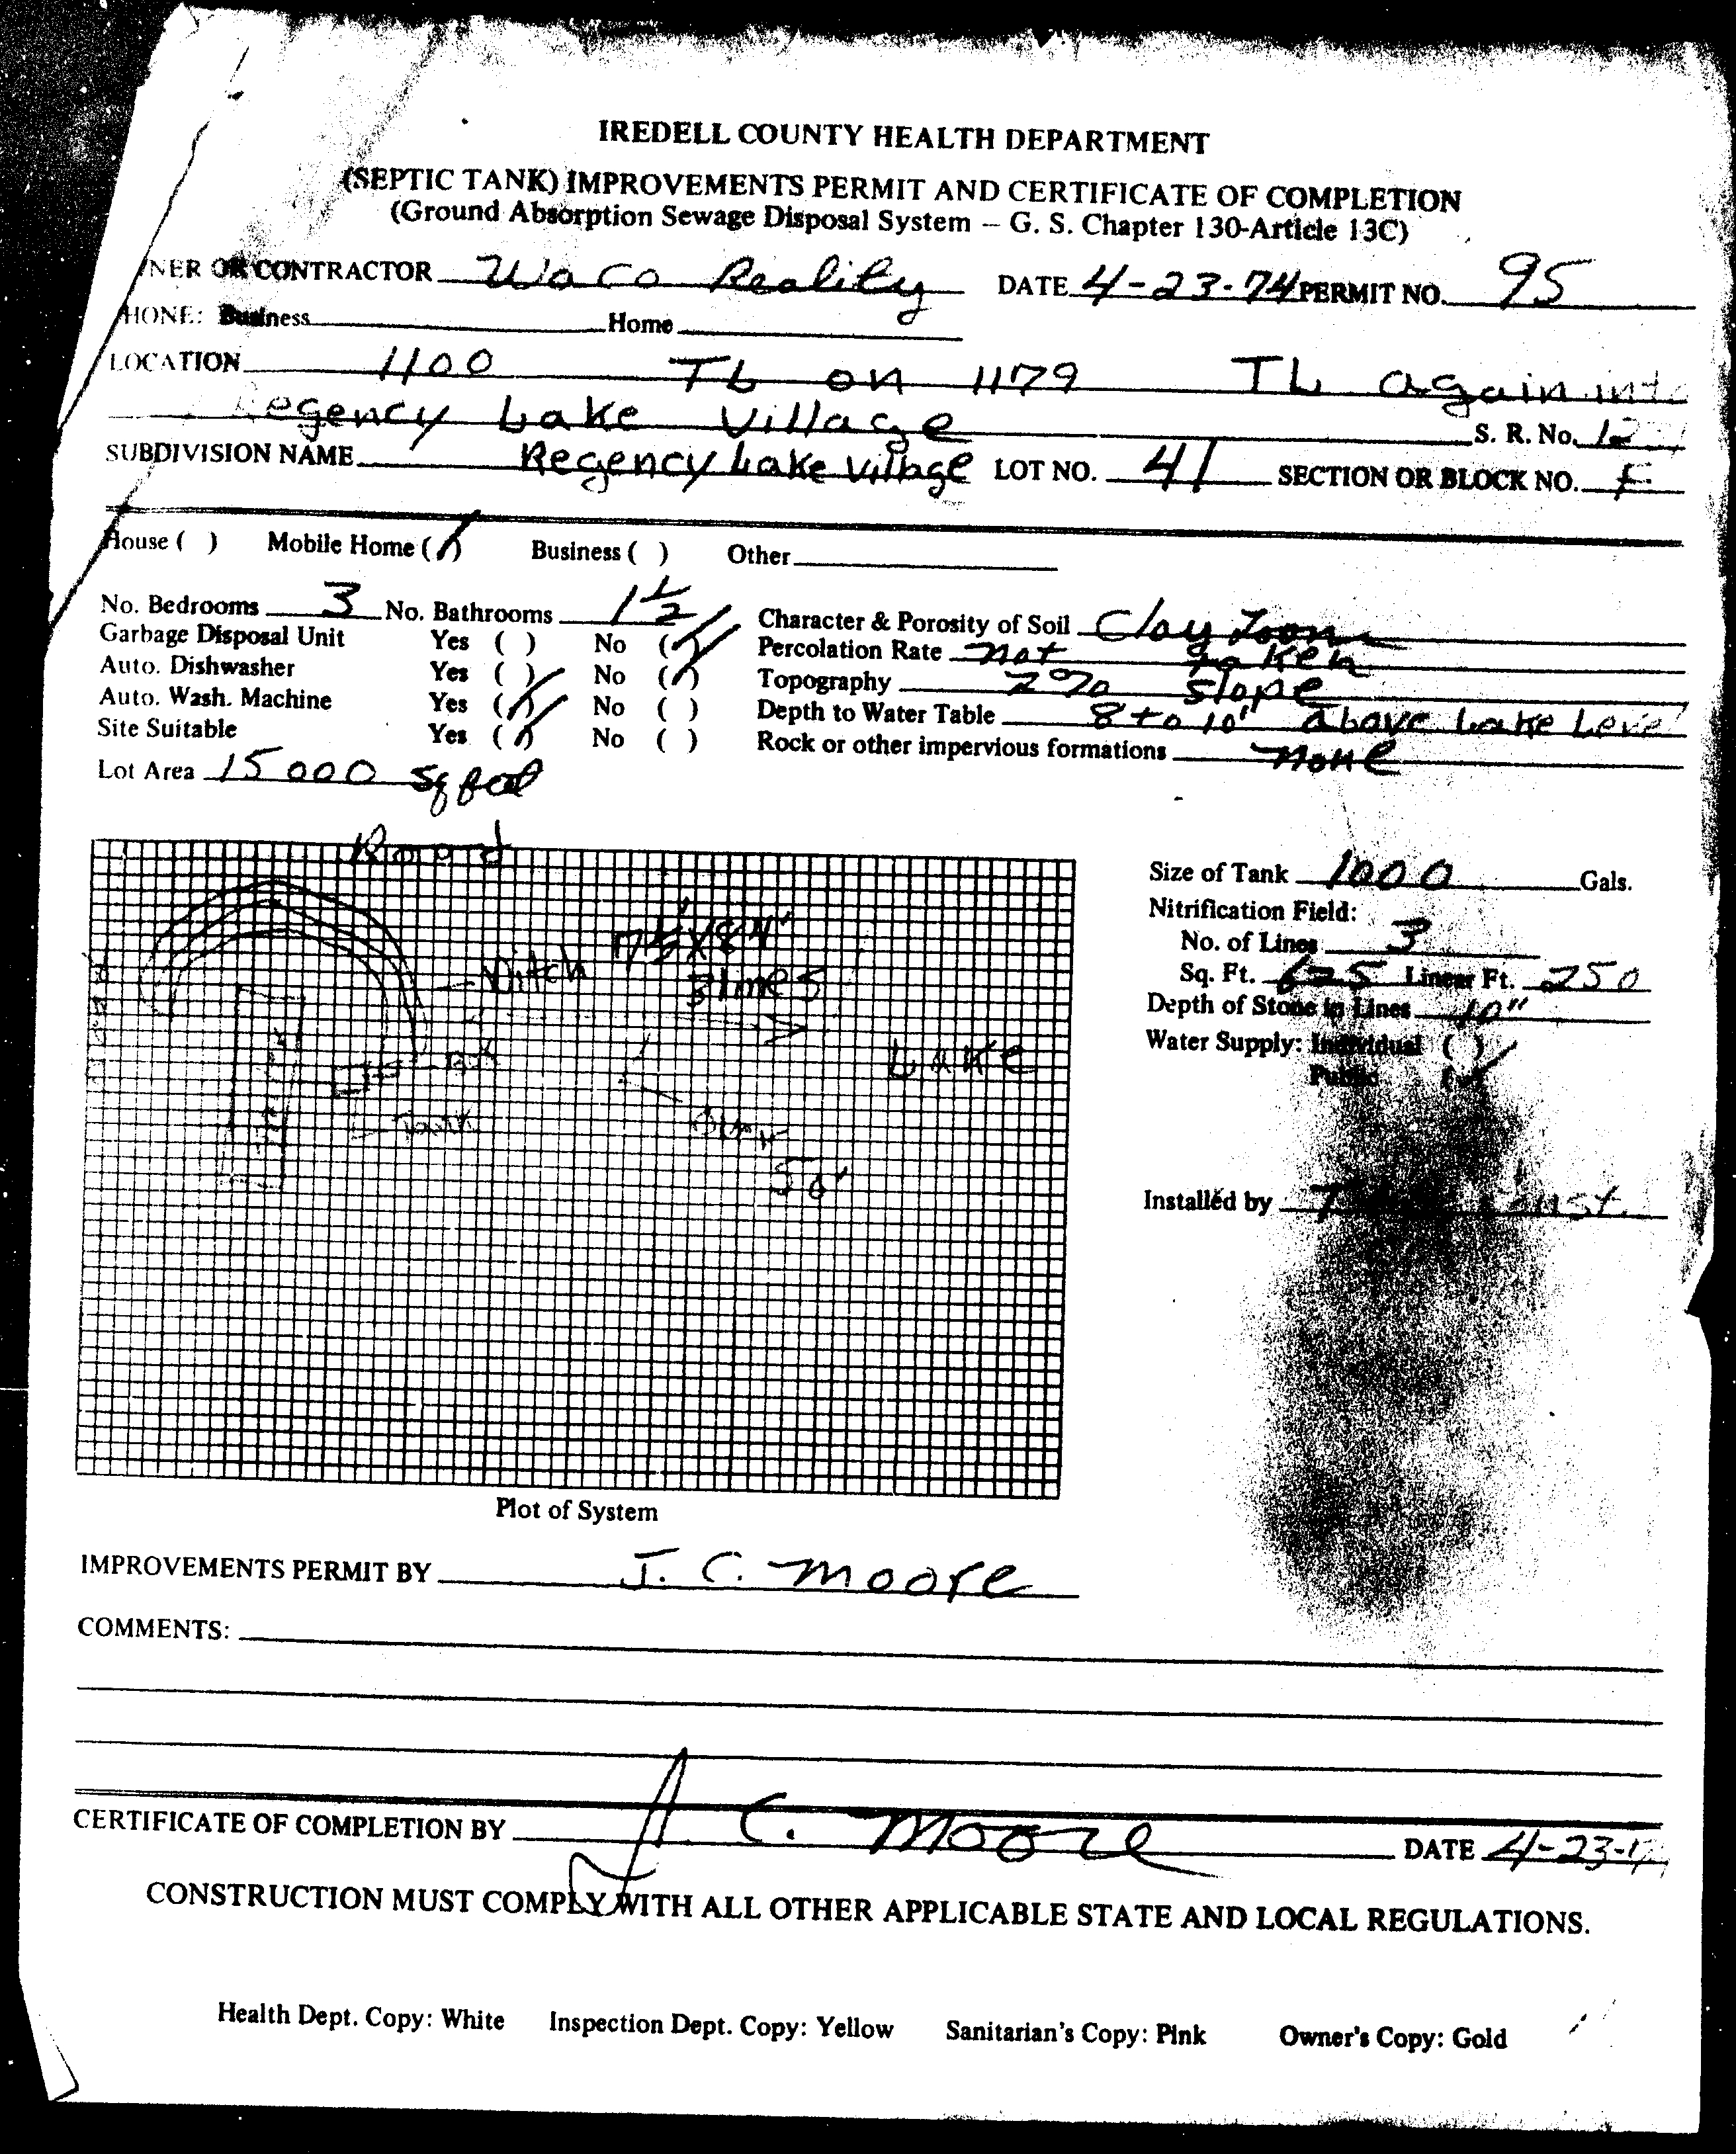 IREDELL COUNTY HEALTH DEPARTMENT
(SEPTIC TANK) IMPROVEMENTS PERMIT AND CERTIFICATE OF COMPLETION
(Ground Absorption Sewage Disposal System – G. S. Chapter 130-Article 13C)
NER OR CONTRACTOR WaCo Reality DATE 4-23-74 PERMIT NO. 95
HONE: Business Home
LOCATION 1100 TL on 1179 TL again into
Regency Lake Village S. R. No.
SUBDIVISION NAME Regency Lake Village LOT NO. 41 SECTION OR BLOCK NO. F
House ( ) Mobile Home (/) Business ( ) Other
No. Bedrooms 3 No. Bathrooms 1 1/2 Character & Porosity of Soil Clay Loom
Garbage Disposal Unit Yes ( ) No (/) Percolation Rate not taken
Auto. Dishwasher Yes ( ) No (/) Topography 2% slope
Auto. Wash. Machine Yes (/) No ( ) Depth to Water Table 8 to 10' above Lake Level
Site Suitable Yes (/) No ( ) Rock or other impervious formations none
Lot Area 15000 sq feet
Road
Size of Tank 1000 Gals.
Nitrification Field:
Ditch
3 lines
No. of Lines 3
Sq. Ft. 625 Linear Ft. 250
Depth of Stone in Lines 10"
Lake
Water Supply: Individual ( )
Public (/)
Tank
50'
Installed by
Plot of System
IMPROVEMENTS PERMIT BY J. C. Moore
COMMENTS:
CERTIFICATE OF COMPLETION BY J. C. Moore DATE 4-23-74
CONSTRUCTION MUST COMPLY WITH ALL OTHER APPLICABLE STATE AND LOCAL REGULATIONS.
Health Dept. Copy: White Inspection Dept. Copy: Yellow Sanitarian's Copy: Pink Owner's Copy: Gold